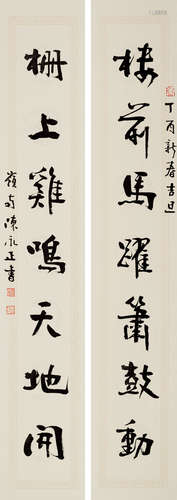 丁酉新春吉旦
楼前馬躍簫鼓動
栅上雞鳴天地開
嶺南陳永正書